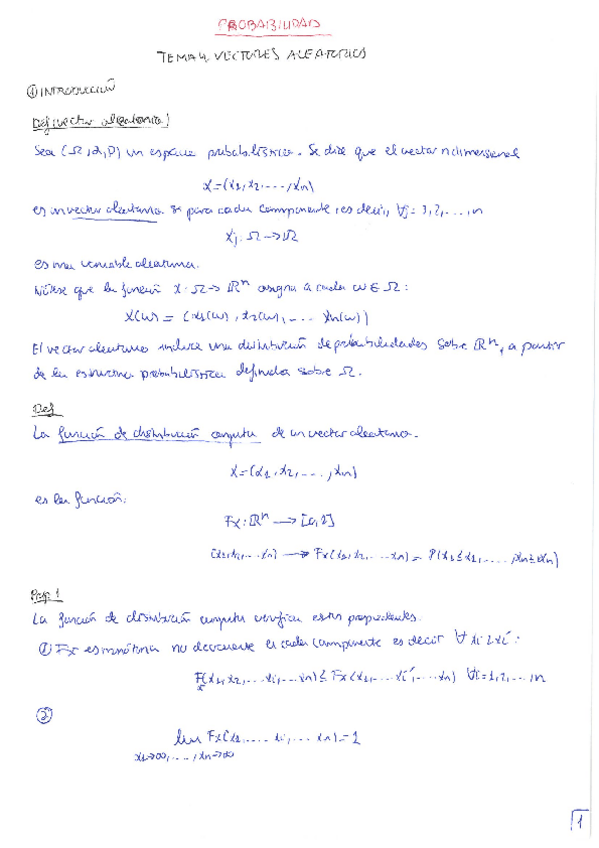 PROBABILIDAD
TEMA 4. VECTORES ALEATORIOS
① INTRODUCCIÓN
Def (vector aleatorio)
Sea (Ω, A, P) un espacio probabilístico. Se dice que el vector n dimensional
X=(x1, x2, ..., xn)
es un vector aleatorio si para cada componente, es decir, ∀j = 1, 2, ..., n
Xj: Ω → ℝ
es una variable aleatoria.
Nótese que la función X: Ω → ℝⁿ asigna a cada ω ∈ Ω:
X(ω) = (x1(ω), x2(ω), ... xn(ω))
El vector aleatorio induce una distribución de probabilidades sobre ℝⁿ, a partir
de la estructura probabilística definida sobre Ω.
Def
La función de distribución conjunta de un vector aleatorio.
X=(x1, x2, ..., xn)
es la función:
Fx: ℝⁿ → [0,1]
(x1, x2, ... xn) → Fx(x1, x2, ... xn) = P(x1 ≤ x1, ..., xn ≤ xn)
Prop 1
La función de distribución conjunta verifica estas propiedades.
① Fx es monótona no decreciente en cada componente es decir ∀ xi ≥ xi':
Fx(x1, x2, ... xi, ... xn) ≤ Fx(x1, ... xi', ... xn) ∀i=1, 2, ..., n
②
lim Fx(x1, ... xi, ... xn) = 1
x1→∞, ..., xn→∞
1